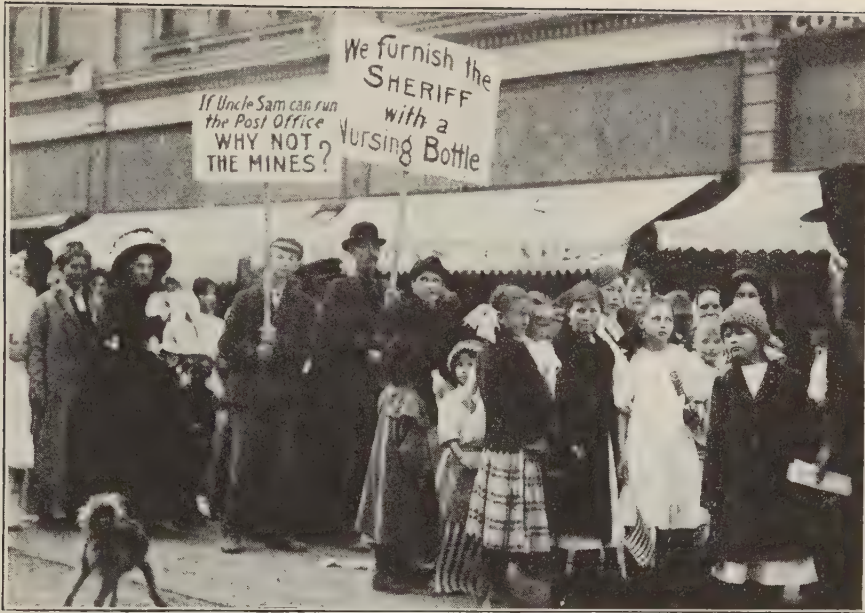 If Uncle Sam can run
the Post Office
WHY NOT
THE MINES?
We furnish the
SHERIFF
with a
Nursing Bottle